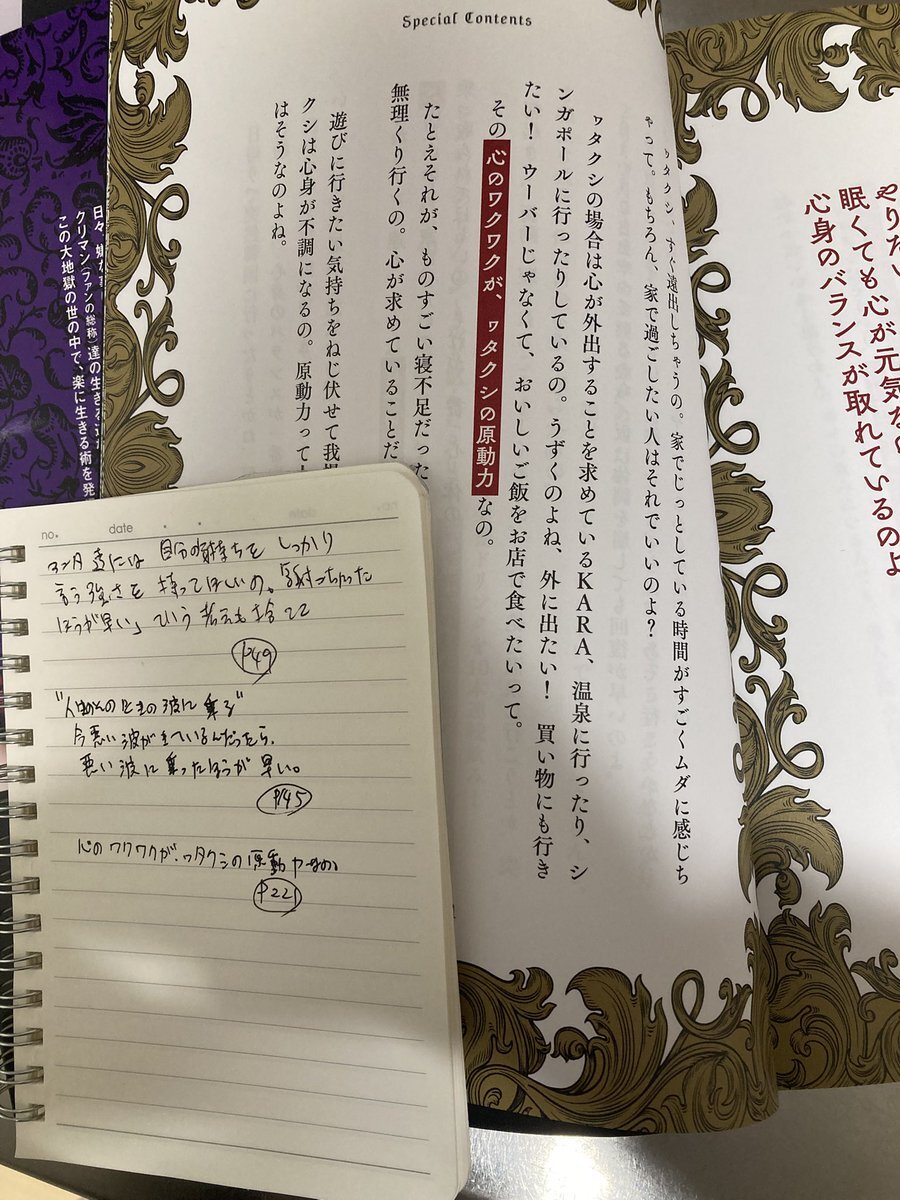 Special Contents
ヮタクシ、すぐ遠出しちゃうの。家でじっとしている時間がすごくムダに感じち
ゃって。もちろん、家で過ごしたい人はそれでいいのよ?
ヮタクシの場合は心が外出することを求めているKARA、温泉に行ったり、シ
ンガポールに行ったりしているの。うずくのよね、外に出たい! 買い物にも行き
たい! ウーバーじゃなくて、おいしいご飯をお店で食べたいって。
その心のワクワクが、ヮタクシの原動力なの。
たとえそれが、ものすごい寝不足だった
無理くり行くの。心が求めていることだ
遊びに行きたい気持ちをねじ伏せて我
クシは心身が不調になるの。原動力って
はそうなのよね。
やりたい
眠くても心が元気な
心身のバランスが取れているのよ
日々、嫌な
クリマン(ファンの総称)達の生きる
この大地獄の世の中で、楽に生きる術を発
no. date
には 自分の気持ちを しっかり
言う強さを 持ってほしいの。「黙っちゃった
ほうが早い」っていう 考えも 捨てて
P49
"人はそのときの波に 乗る"
今悪い波がきているんだったら、
悪い波に乗ったほうが 早い。
P145
心の ワクワクが、ヮタクシの原動力なの
P221